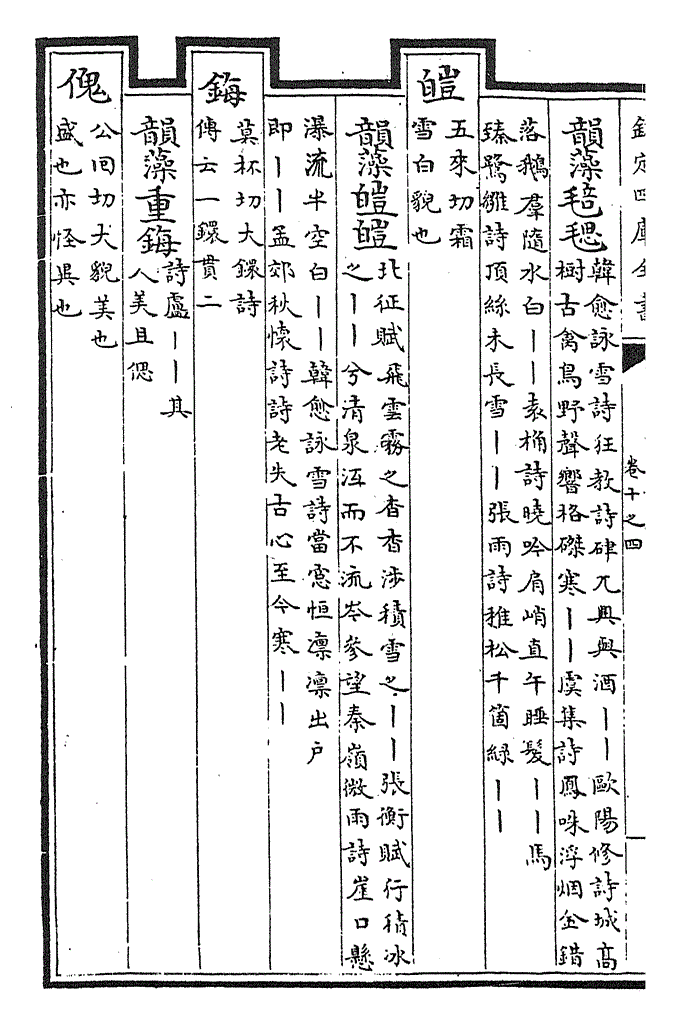 欽定四庫全書
卷十之四
韻藻毰毸
韓愈詠雪詩狂教詩硉兀興與酒丨丨歐陽修詩城高
樹古禽鳥野聲響格磔寒丨丨虞集詩鳳咮浮烟金錯
落鵝羣隨水白丨丨袁桷詩曉吟肩峭直午睡髮丨丨馬
臻鷺雛詩頂絲未長雪丨丨張雨詩稚松千箇綠丨丨
皚
五來切霜
雪白貌也
韻藻皚皚
北征賦飛雲霧之杳杳涉積雪之丨丨張衡賦行積冰
之丨丨兮清泉沍而不流岑參望秦嶺微雨詩崖口懸
瀑流半空白丨丨韓愈詠雪詩當窓恒凛凛出户
即丨丨孟郊秋懷詩詩老失古心至今寒丨丨
鋂
莫杯切大鐶詩
傳云一鐶貫二
韻藻重鋂
詩盧丨丨其
人美且偲
傀
公回切大貌美也
盛也亦怪異也